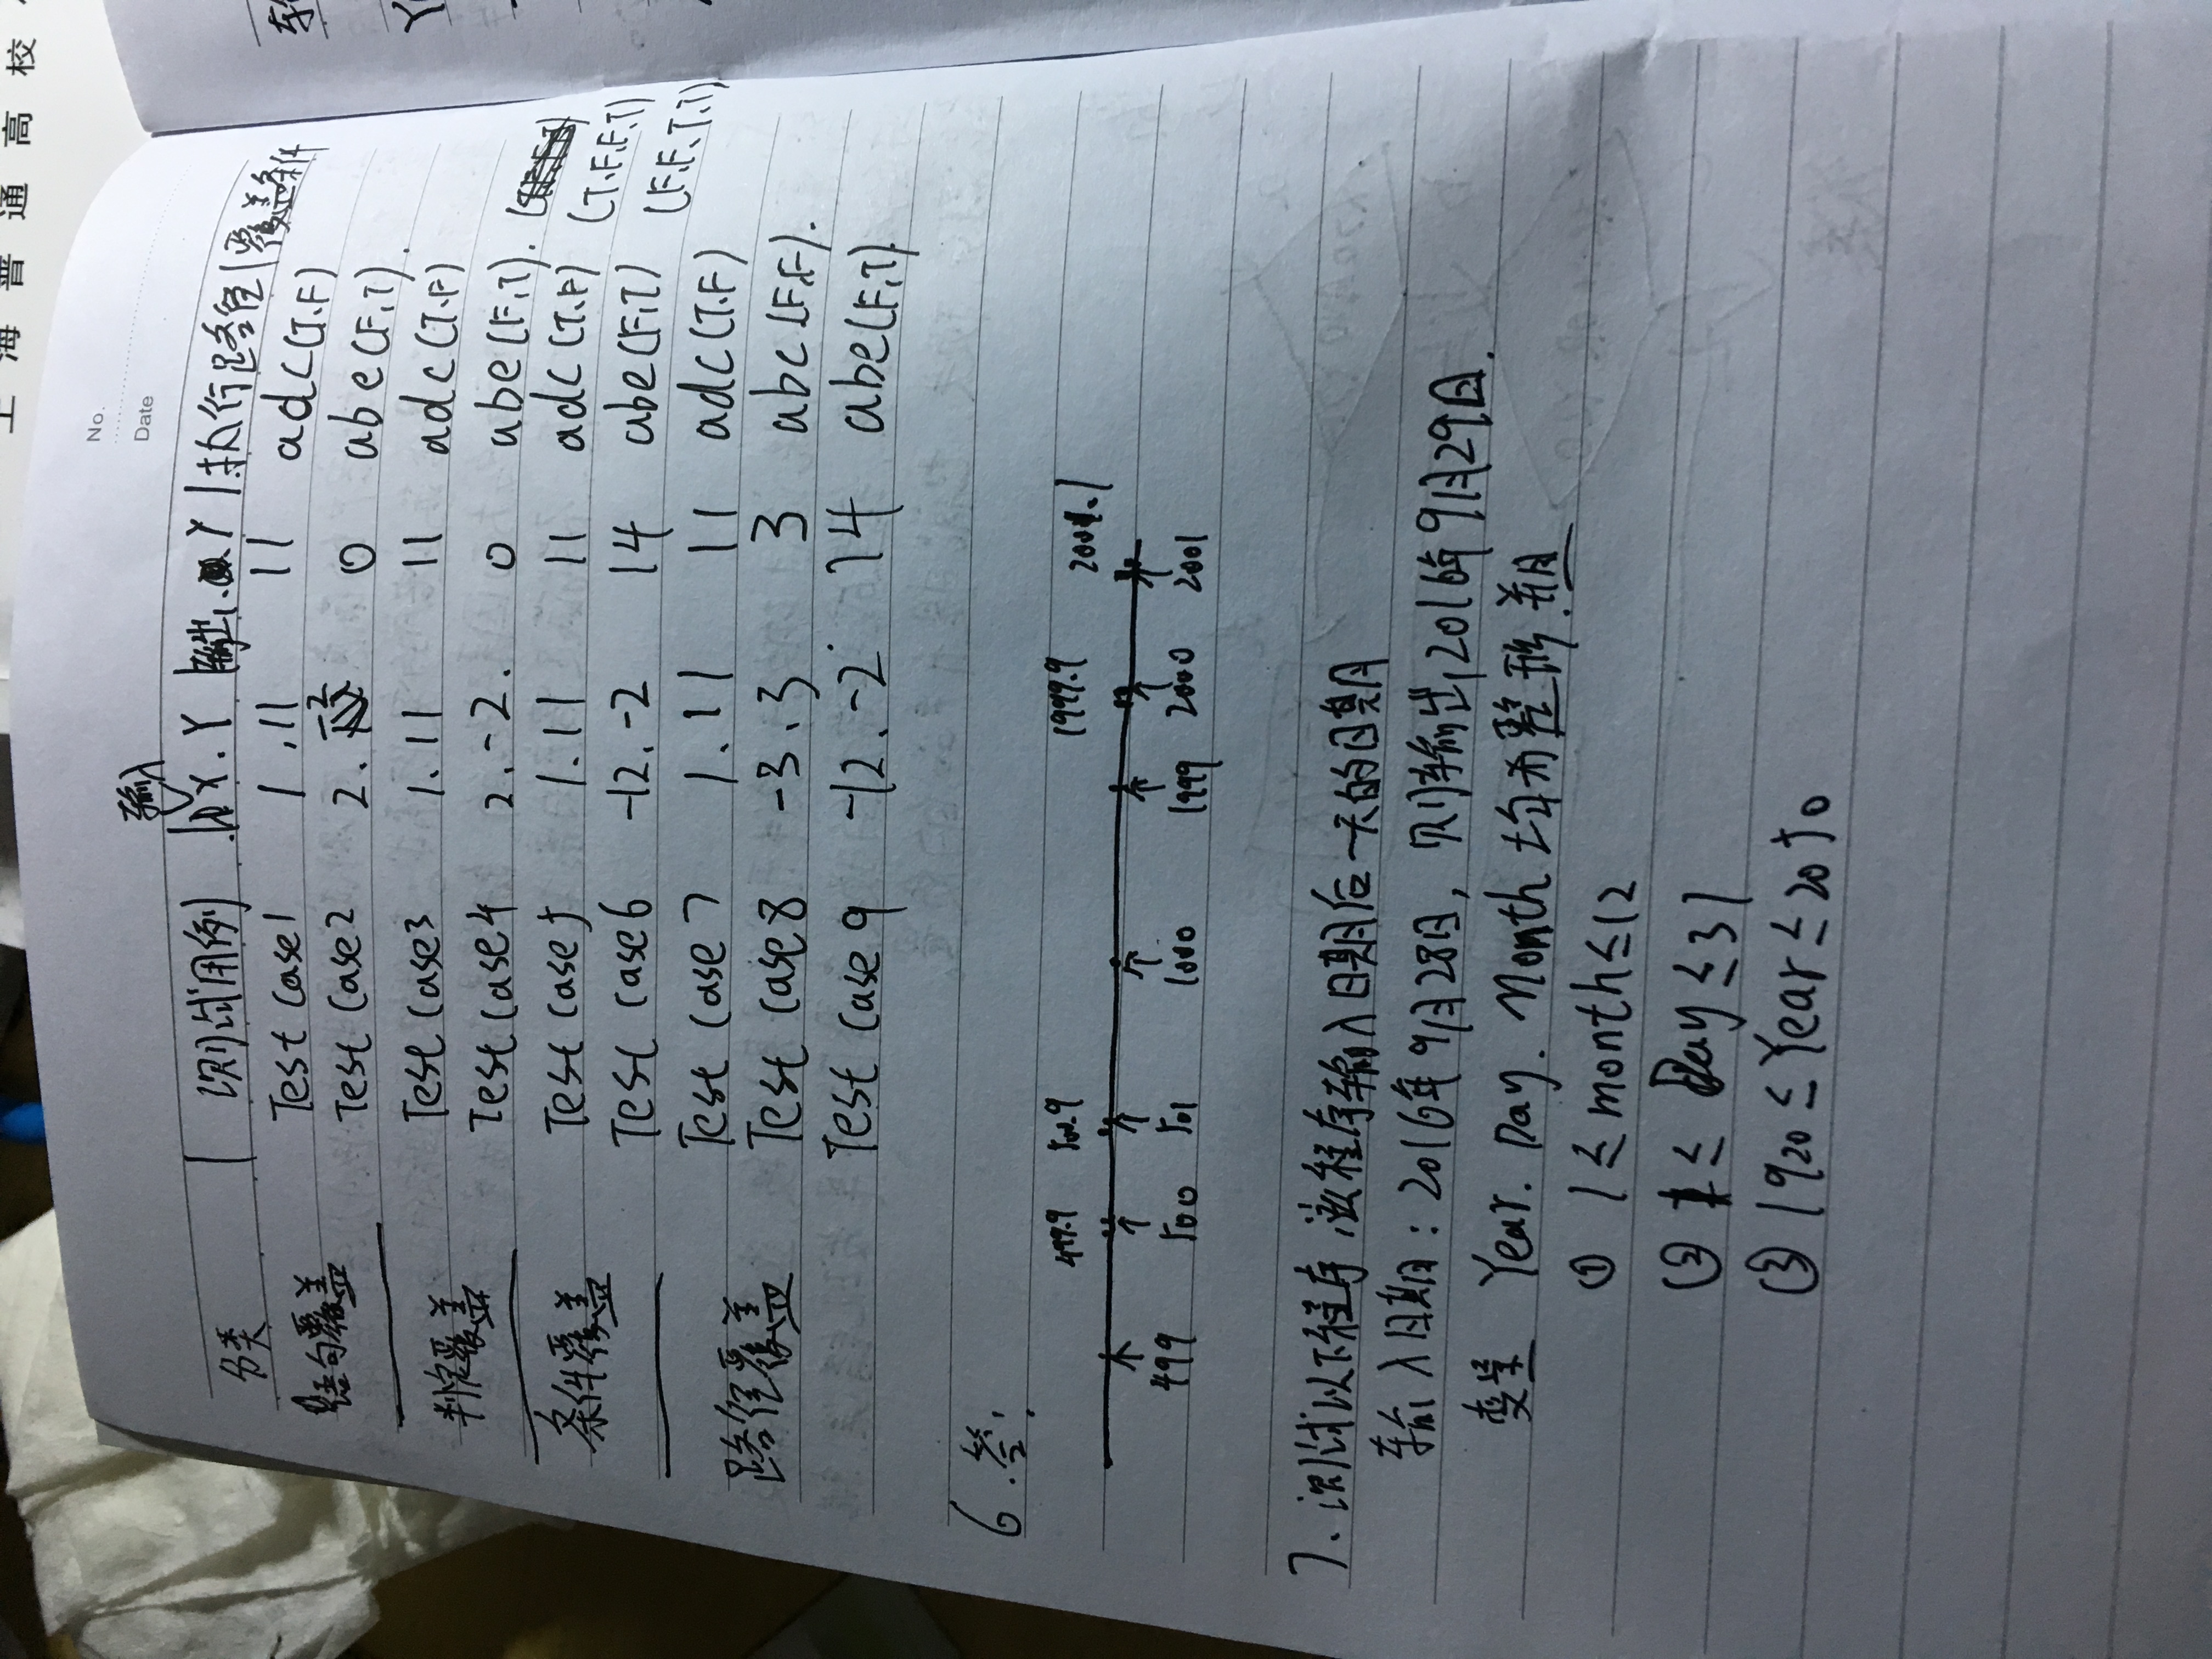 上海普通高校
No.
Date
输入
分类 测试用例 X.Y 输出 Y 执行路径 覆盖条件
语句覆盖 Test Case1 1.11 11 adc(T.F)
Test Case2 2.-2 0 abe(F,T).
判定覆盖 Test Case3 1.11 11 adc(T.F)
Test Case4 2.-2. 0 abe(F,T).
条件覆盖 Test Case5 1.11 11 adc(T.F) (T.F.F.T)
Test Case6 -12.-2 14 abe(F,T) (F.F.T.T)
路径覆盖 Test Case7 1.11 11 adc(T.F)
Test Case8 -3.3 3 abc(F,F).
Test Case9 -12.-2 14 abe(F,T)
6.答:
499.9 500.9 1999.9 2001.1
499 500 501 1000 1999 2000 2001
7.测试以下程序 该程序输入日期后一天的日期
输入日期:2016年9月28日,则输出2016年9月29日.
变量 Year.Day.Month 均为整形.并且
① 1≤month≤12
② 1≤Day≤31
③ 1920≤Year≤2050